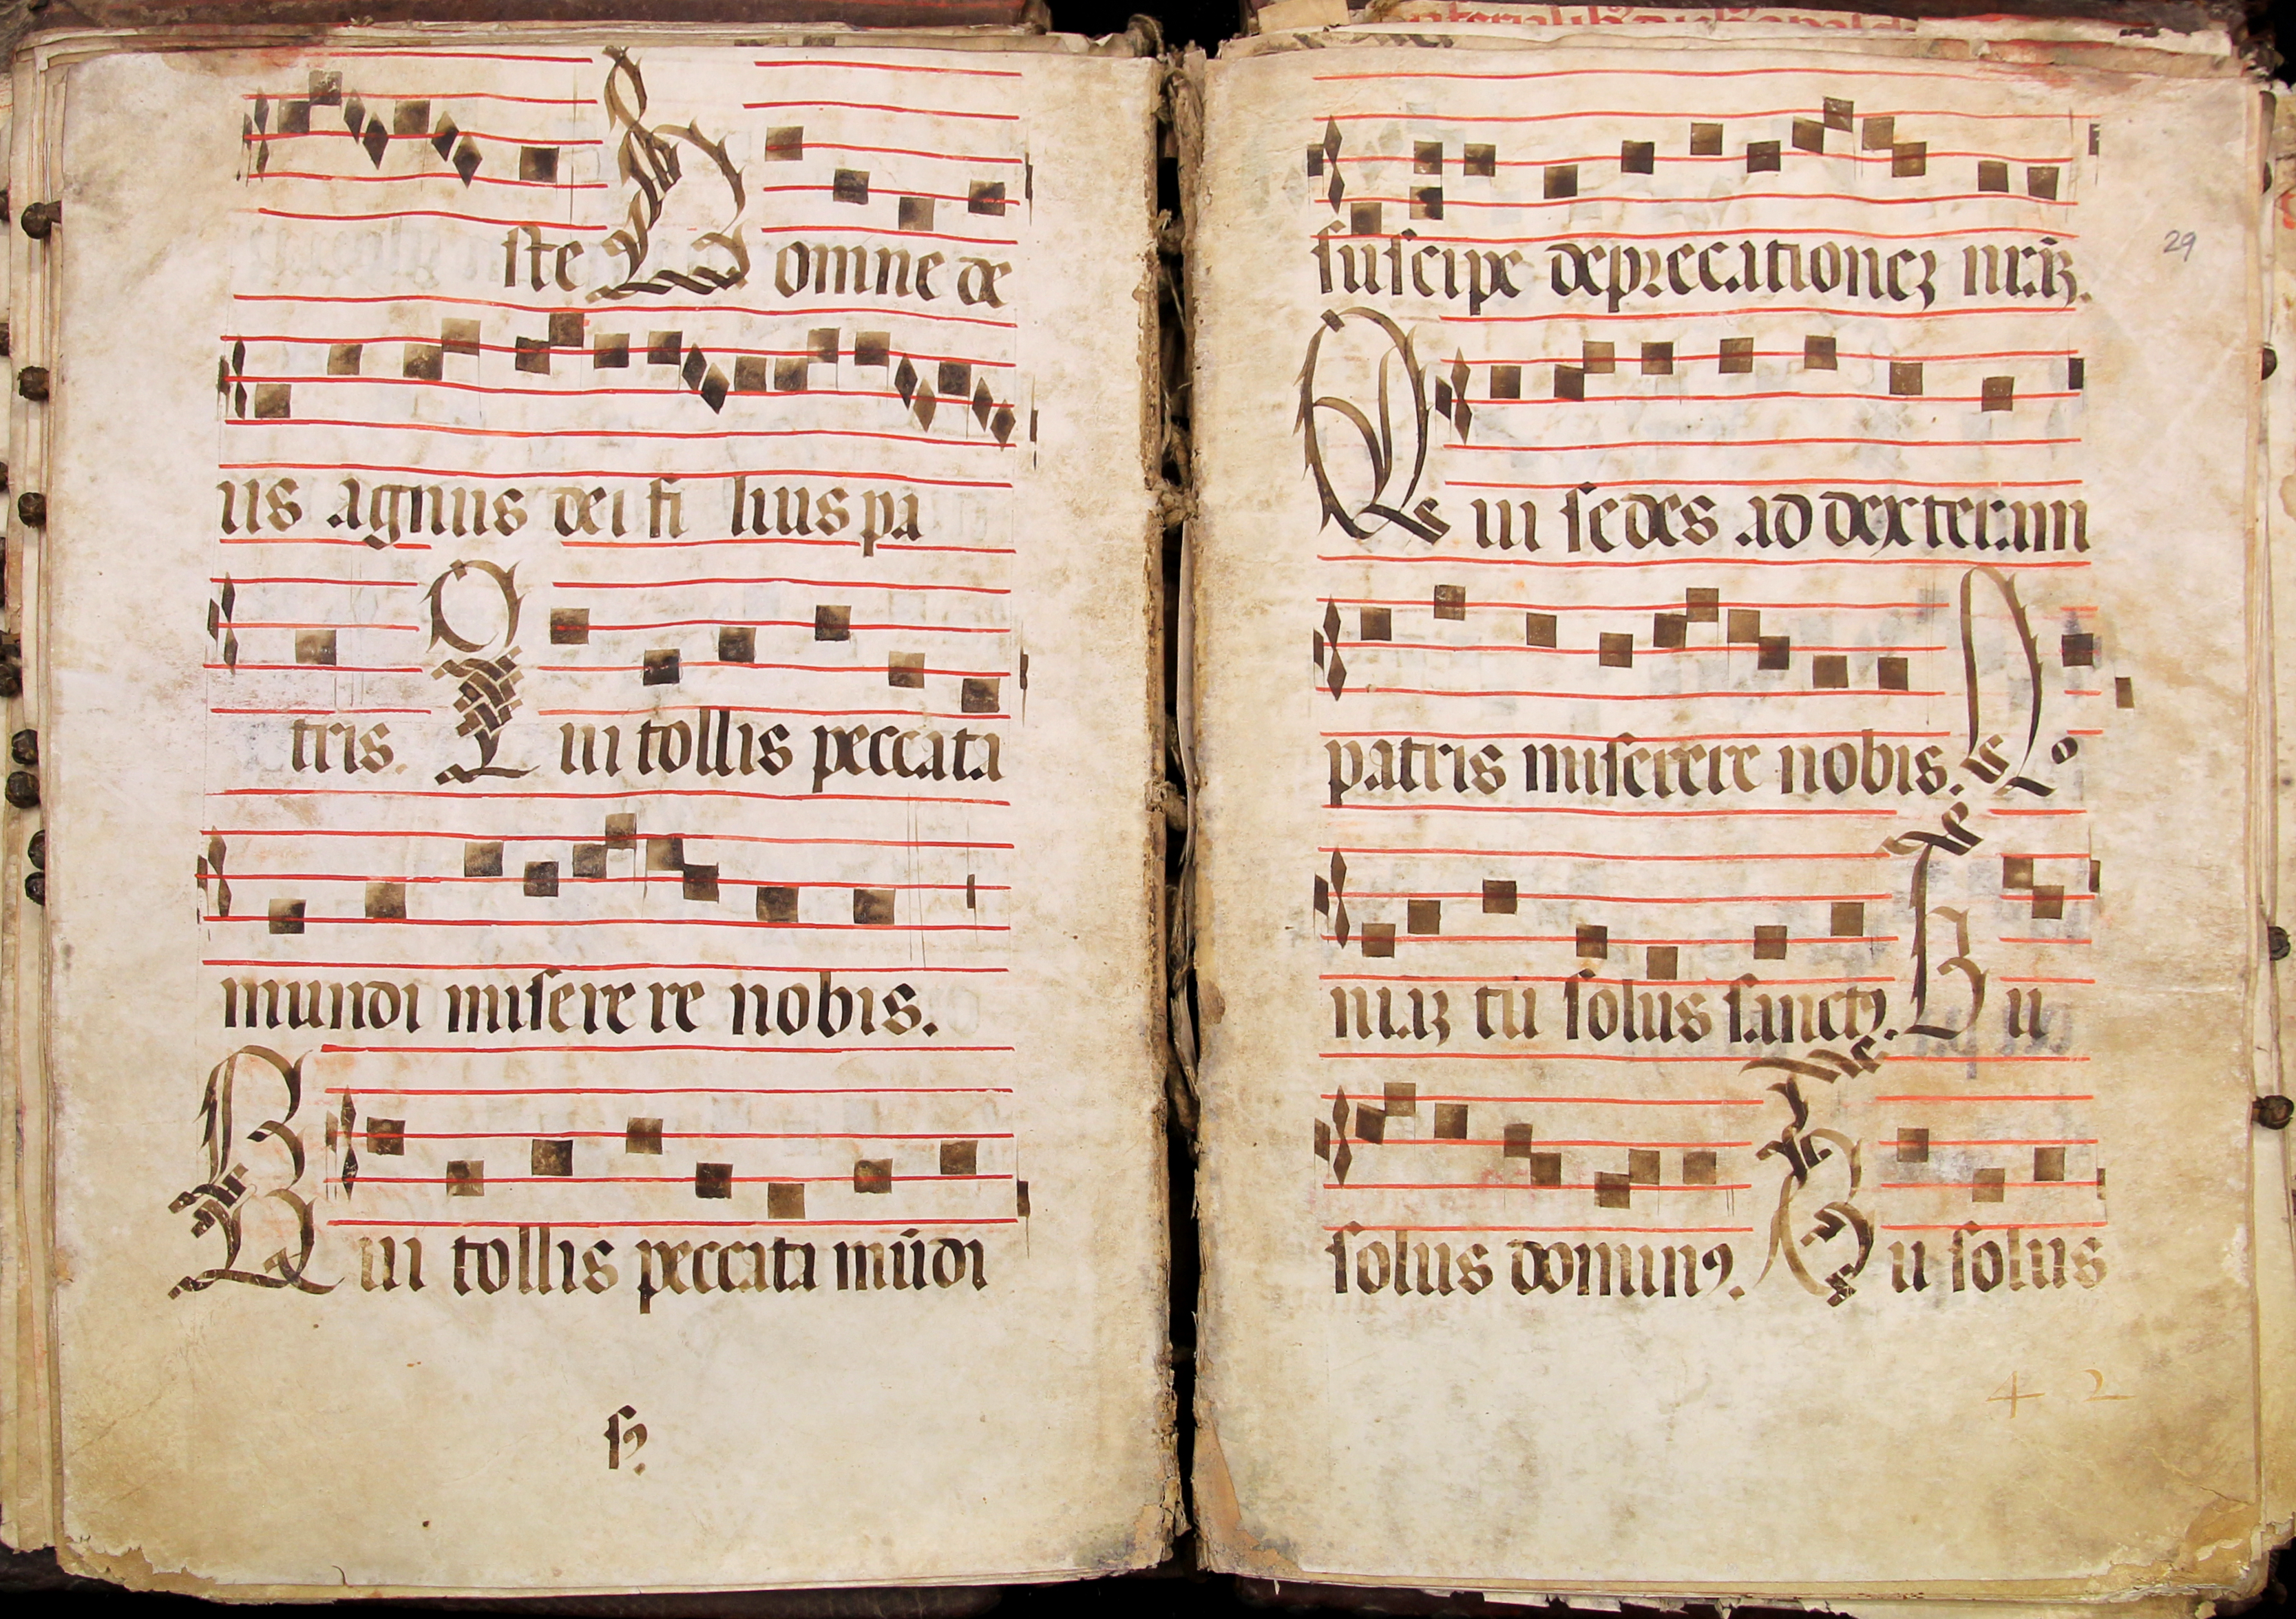 ste Domine de
us agnus dei fi lius pa
tris. Qui tollis peccata
mundi miserere nobis.
Qui tollis peccata mūdi
suscipe deprecationeʒ nr̄aʒ.
29
Qui sedes ad dexteram
patris miserere nobis. Qo
niaʒ tu solus sanctꝰ. Tu
solus dominꝰ. Tu solus
4 2